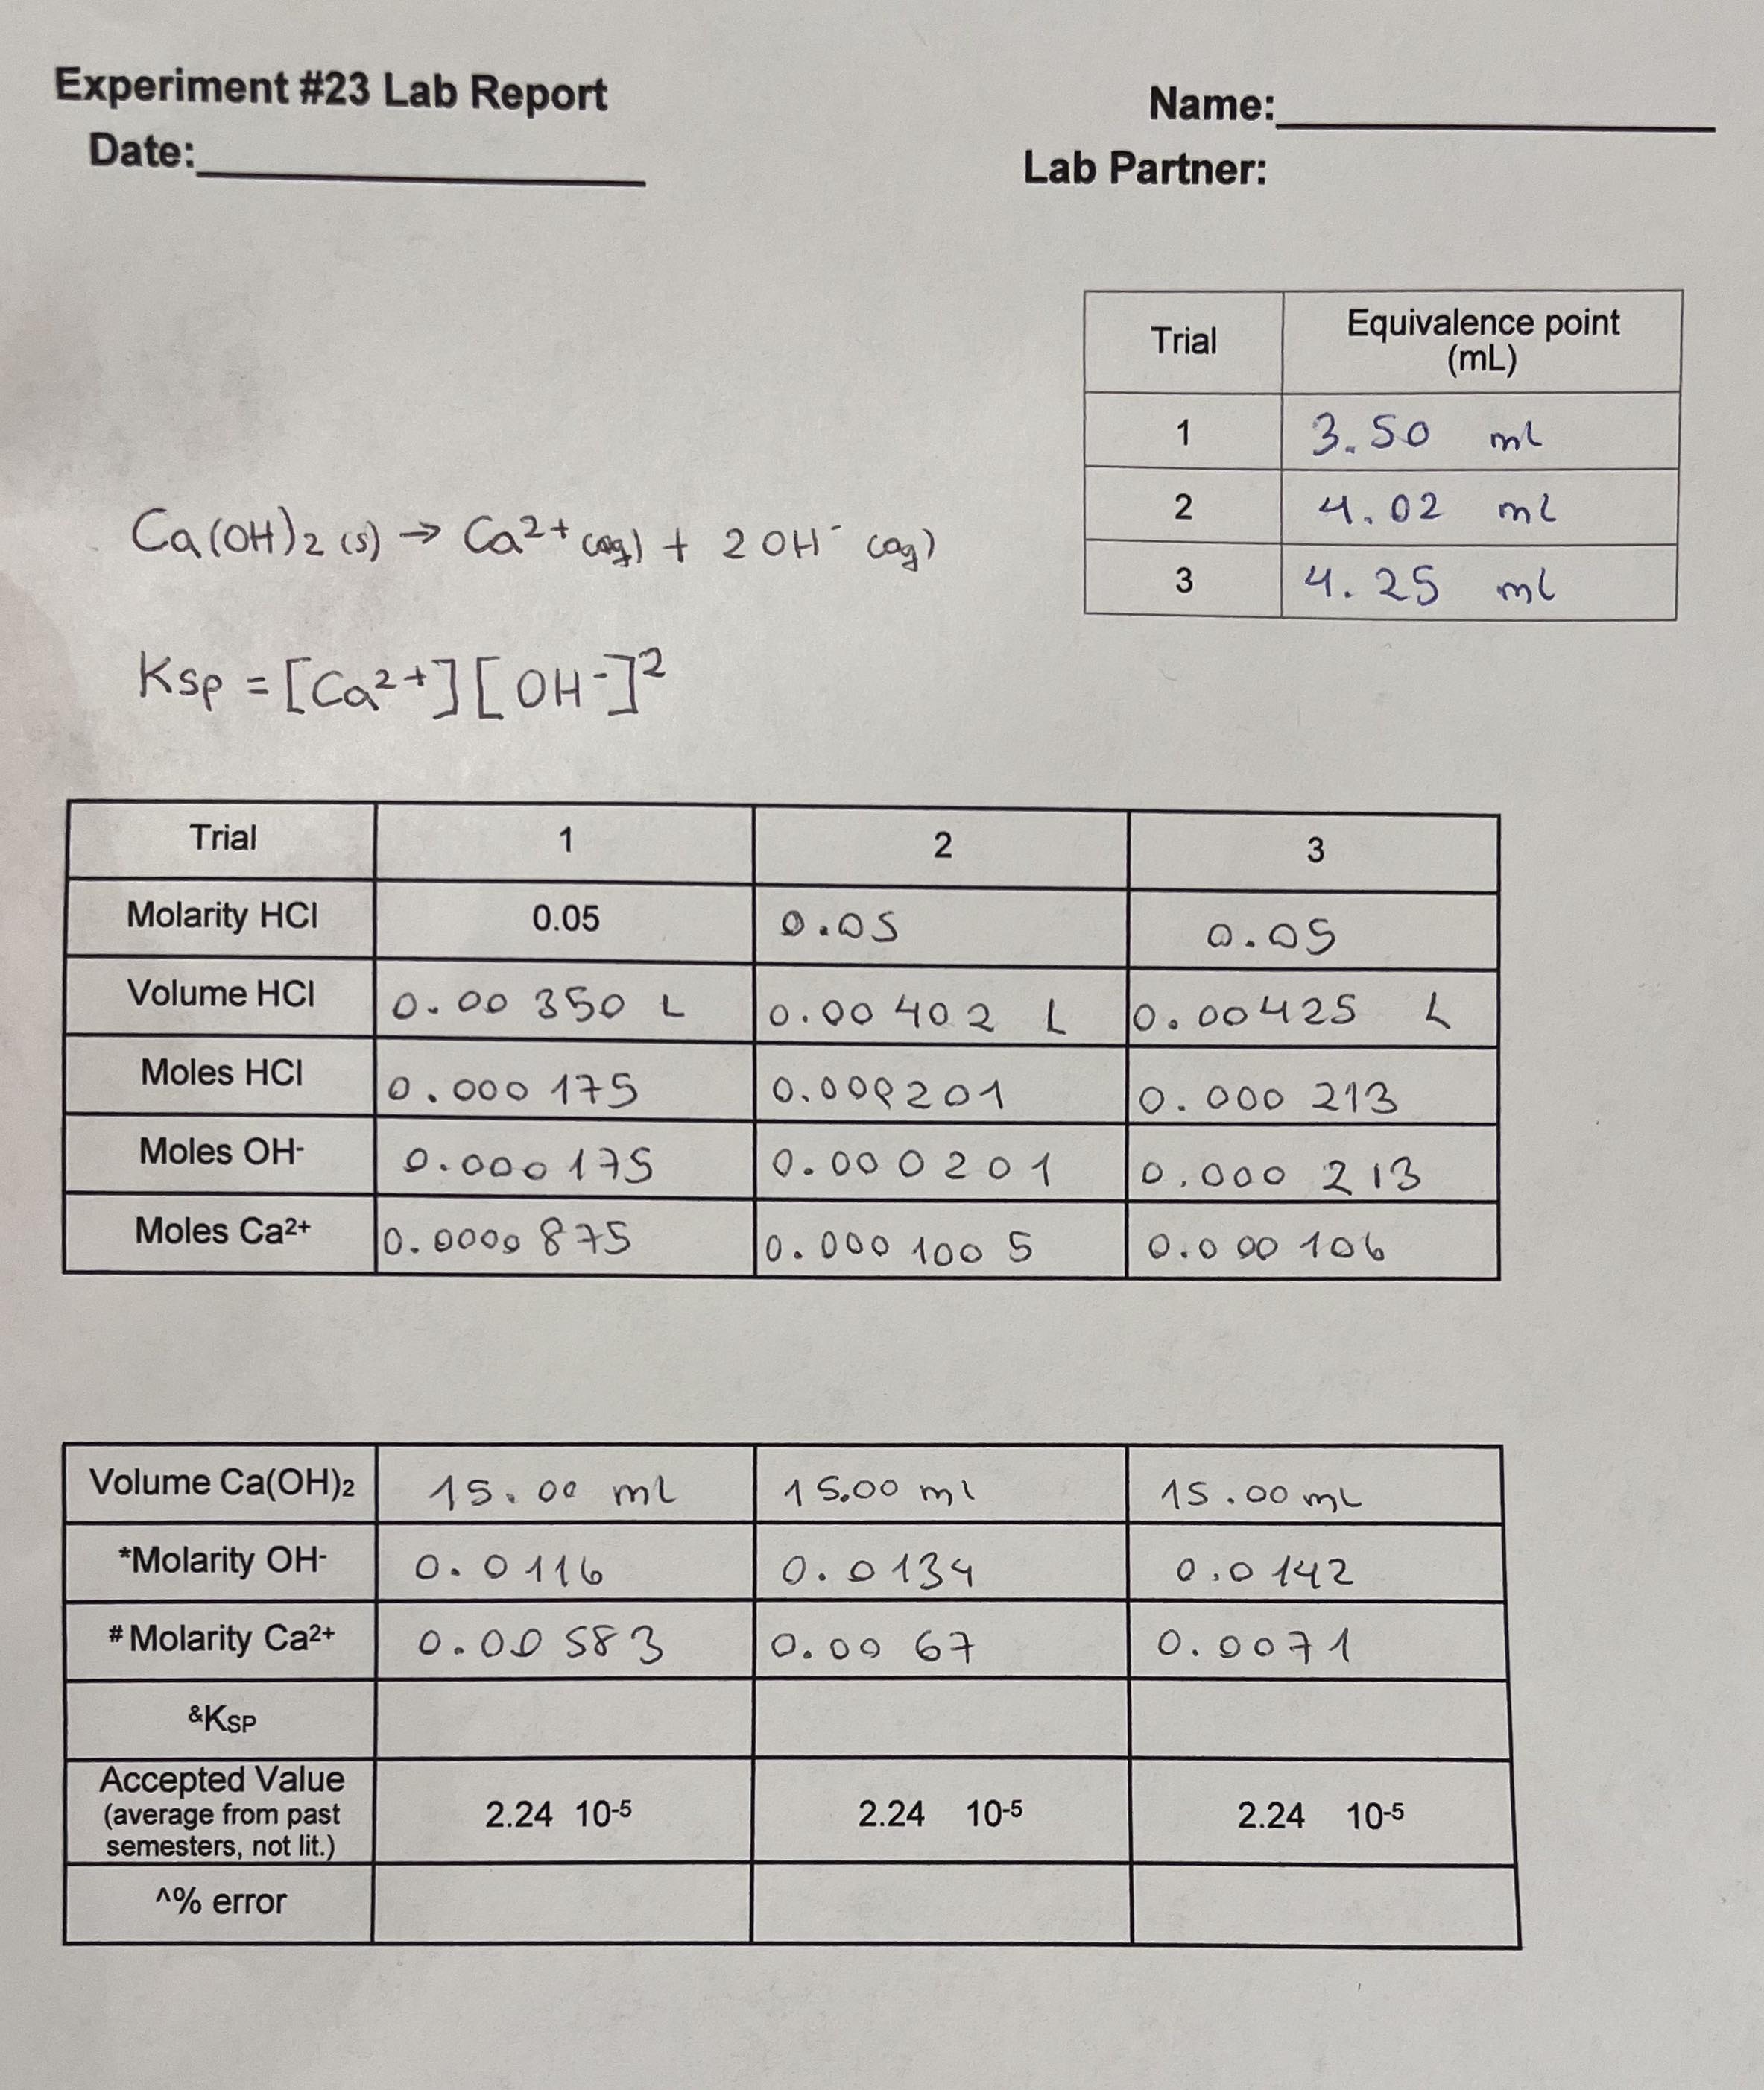 Experiment #23 Lab Report
Name:
Date:
Lab Partner:
Trial Equivalence point (mL)
1 3.50 ml
2 4.02 ml
3 4.25 ml
Ca(OH)2 (s) → Ca2+ (aq) + 2OH- (aq)
Ksp = [Ca2+][OH-]2
Trial 1 2 3
Molarity HCl 0.05 0.05 0.05
Volume HCl 0.00350 L 0.00402 L 0.00425 L
Moles HCl 0.000175 0.000201 0.000213
Moles OH- 0.000175 0.000201 0.000213
Moles Ca2+ 0.0000875 0.0001005 0.000106
Volume Ca(OH)2 15.00 ml 15.00 ml 15.00 ml
*Molarity OH- 0.0116 0.0134 0.0142
#Molarity Ca2+ 0.00583 0.0067 0.0071
&KSP
Accepted Value
(average from past
semesters, not lit.) 2.24 10-5 2.24 10-5 2.24 10-5
^% error